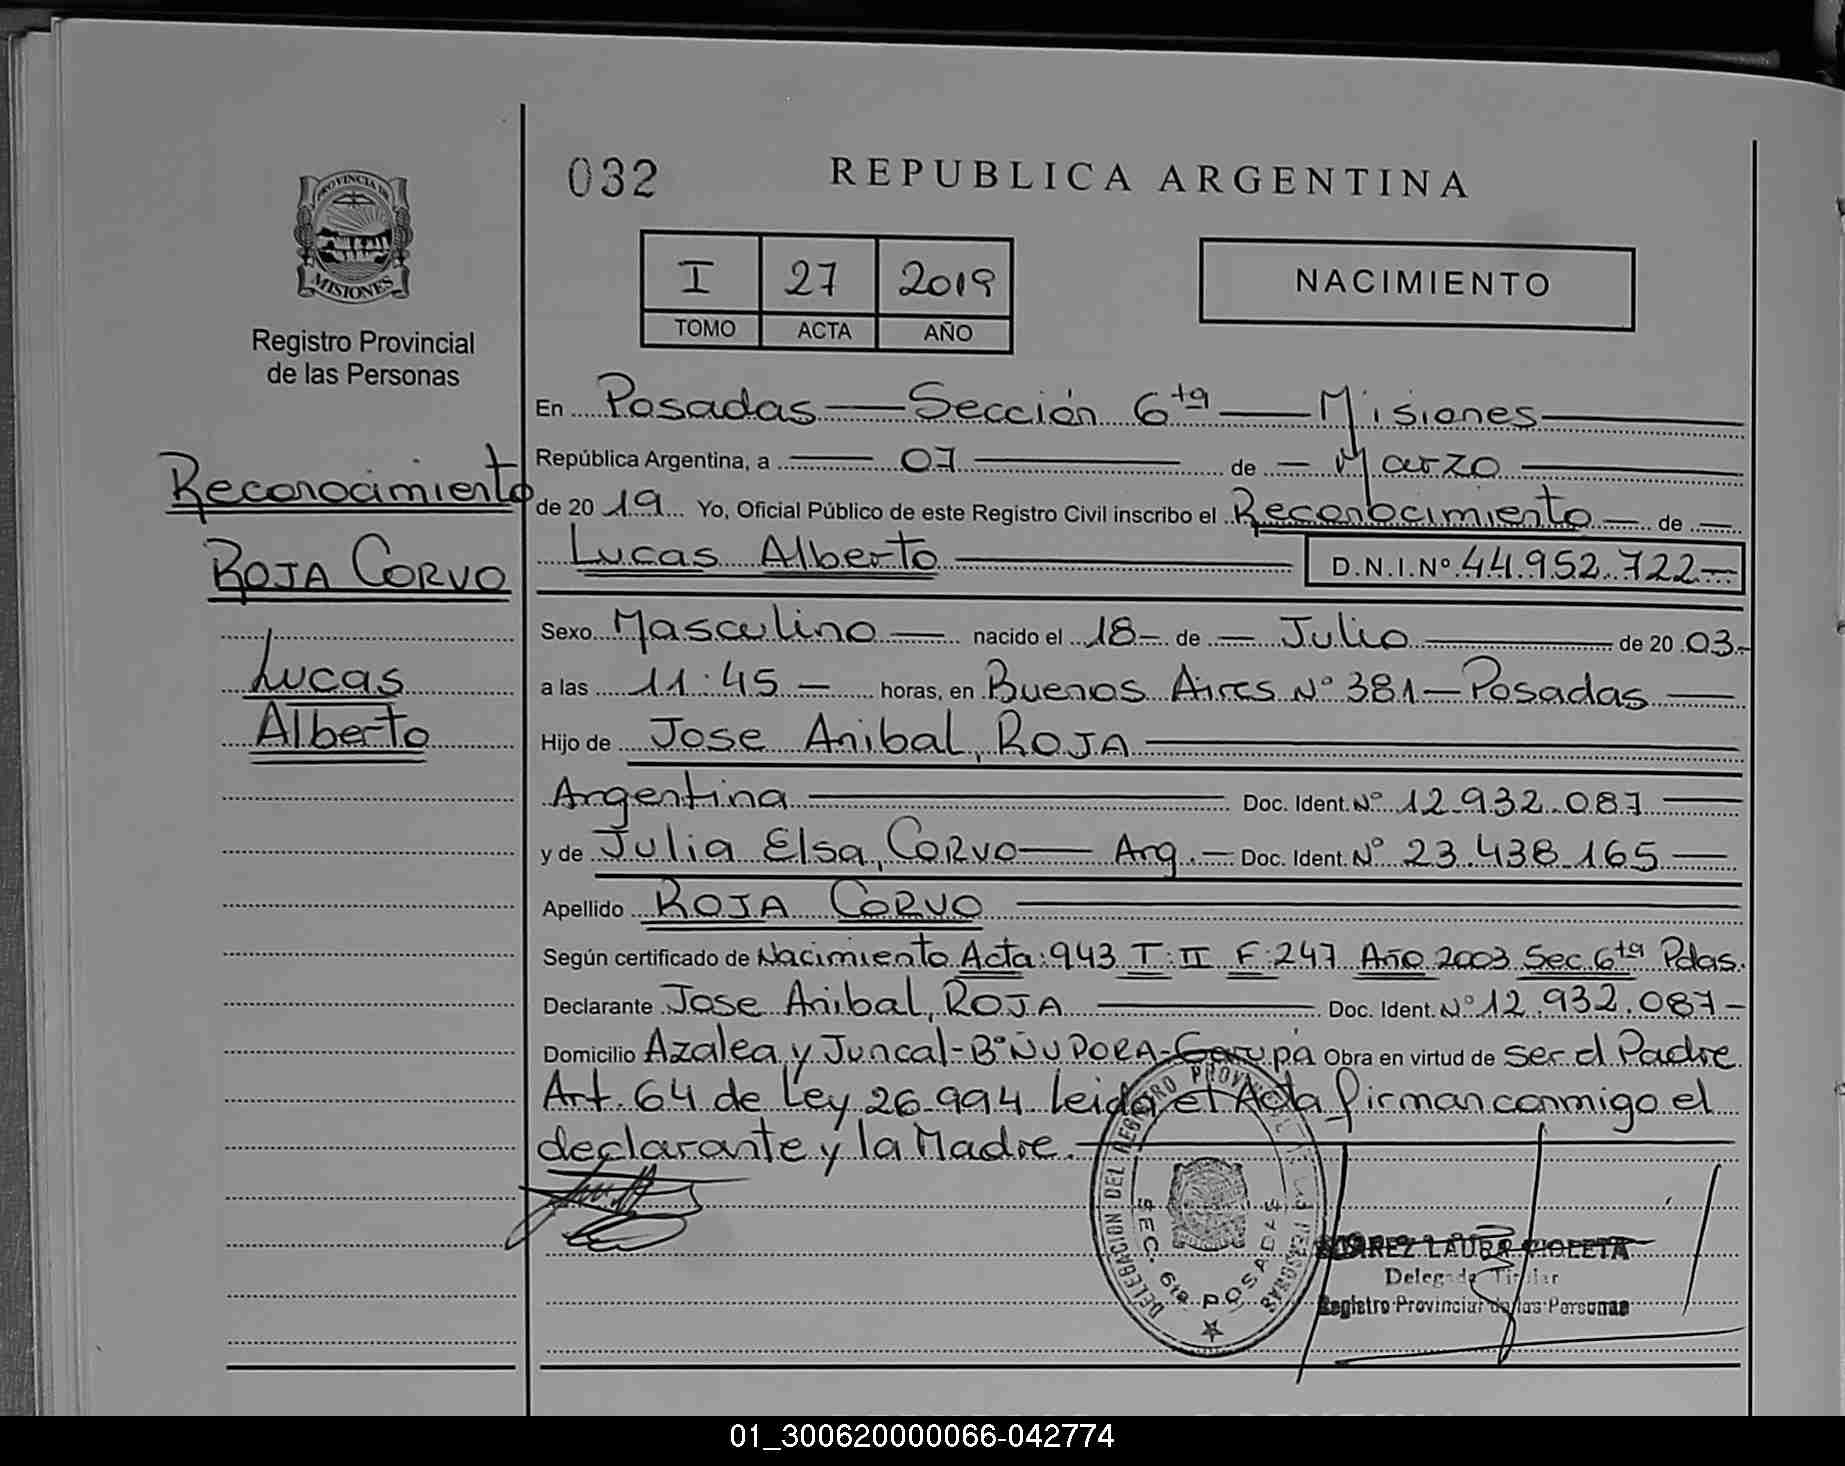 032
REPUBLICA ARGENTINA
PROVINCIA DE
MISIONES
Registro Provincial
de las Personas
I 27 2019
TOMO ACTA AÑO
NACIMIENTO
Reconocimiento
ROJA CORVO
Lucas
Alberto
En Posadas — Sección 6ta — Misiones
República Argentina, a — 07 — de — Marzo
de 20 19 Yo, Oficial Público de este Registro Civil inscribo el Reconocimiento — de —
Lucas Alberto — D.N.I. Nº 44.952.722 —
Sexo Masculino — nacido el 18 — de — Julio — de 20 03 -
a las 11:45 — horas, en Buenos Aires Nº 381 — Posadas —
Hijo de Jose Anibal, ROJA
Argentina — Doc. Ident. Nº 12.932.087 —
y de Julia Elsa, CORVO — Arg. — Doc. Ident. Nº 23.438.165 —
Apellido ROJA CORVO
Según certificado de Nacimiento Acta: 943 T: II F: 247 Año 2003 Sec. 6ta Pdas.
Declarante Jose Anibal, ROJA — Doc. Ident. Nº 12.932.087 -
Domicilio Azalea y Juncal - Bº ÑU PORA - Garupá Obra en virtud de ser el Padre
Art. 64 de Ley 26.994 Leida el Acta firman conmigo el
declarante y la Madre.
DELEGACION DEL REGISTRO PROVINCIAL DE LAS PERSONAS
SEC. 6ta POSADAS
LAURA VIOLETA
Delegada Titular
Registro Provincial de las Personas
01_300620000066-042774